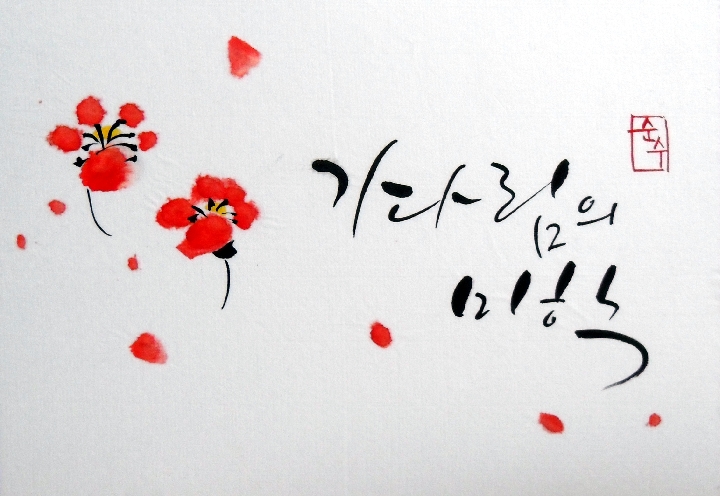 기다림의
미학
순수